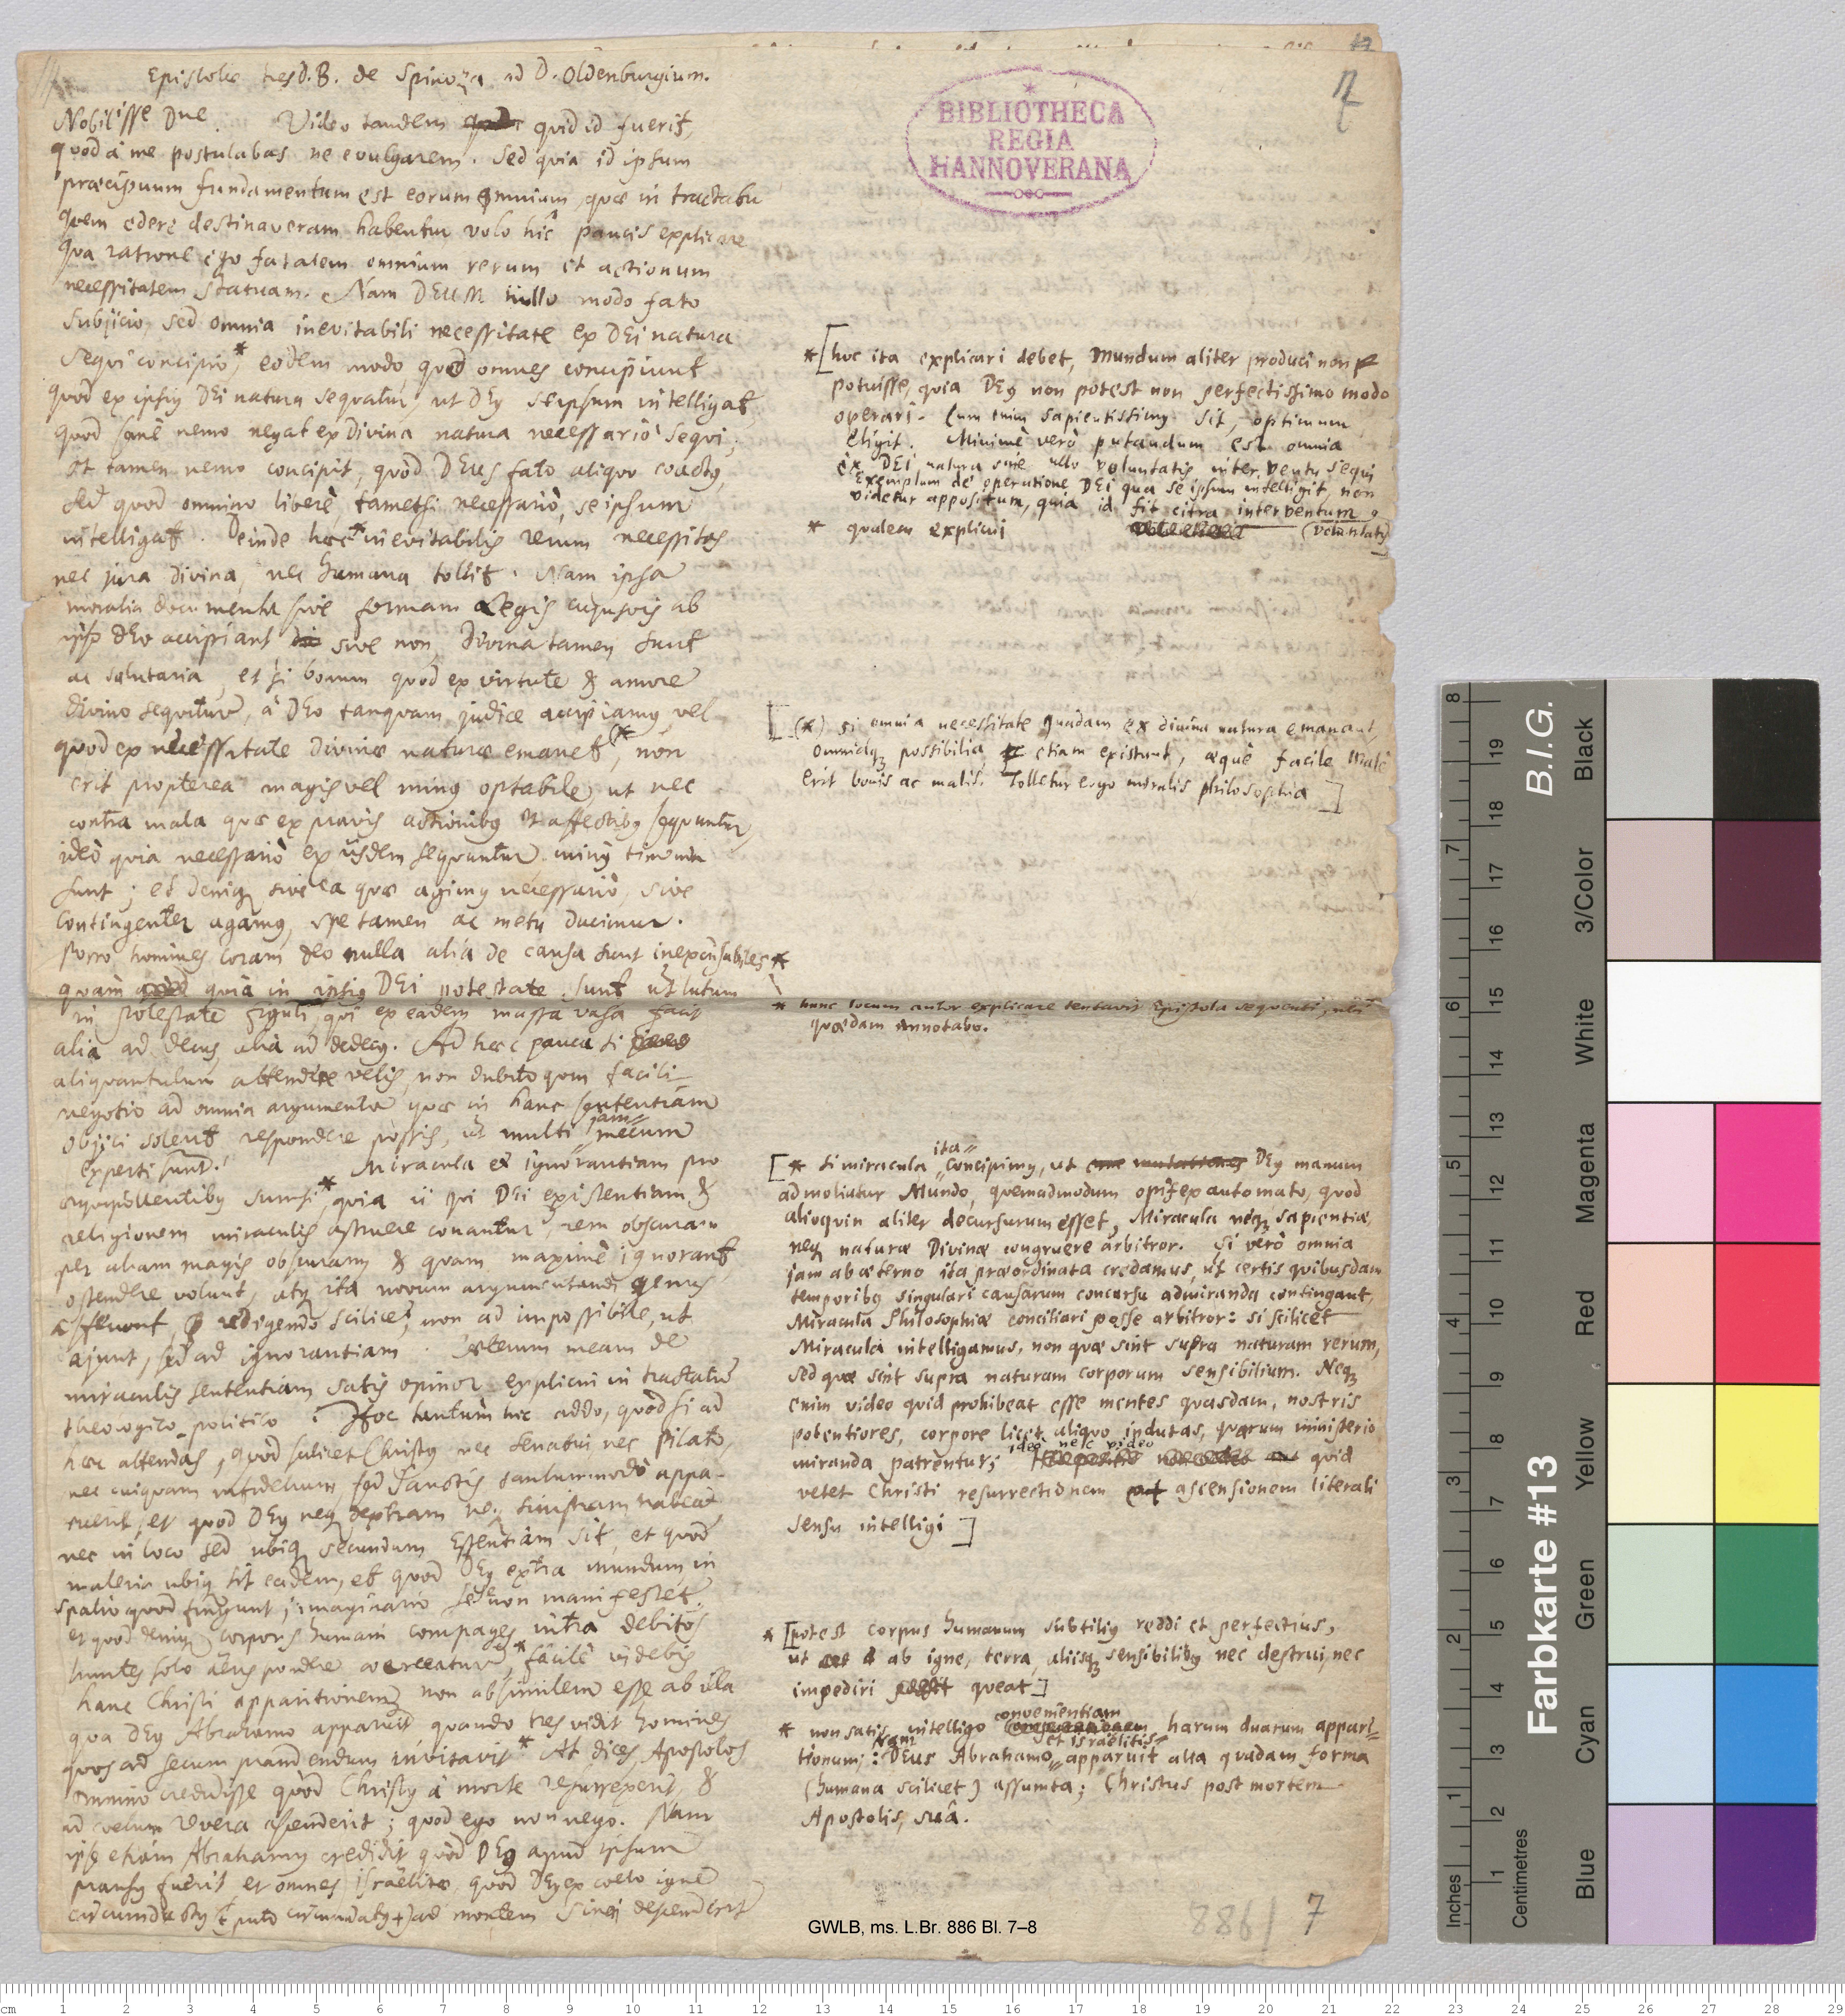 Epistolae tres D. B. de Spinoza ad D. Oldenburgium.
Nobilisse Dne. Video tandem quid id fuerit,
quod à me postulabas ne evulgarem. Sed quia id ipsum
praecipuum fundamentum est eorum omnium, quae in tractatu
quem edere destinaveram habentur volo hîc paucis explicare
qua ratione ego fatalem omnium rerum et actionum
necessitatem statuam. Nam DEUM nullo modo fato
subjicio, sed omnia inevitabili necessitate ex DEi natura
sequi concipio,* eodem modo quod omnes concipiunt
quod ex ipsius DEi natura sequatur, ut DEus seipsum intelligat,
quod sanè nemo negat ex Divina natura necessariò sequi;
et tamen nemo concipit, quòd DEUS fato aliquo coactus,
sed quod omnino liberè tametsi necessariò, se ipsum
intelligat. Deinde haec* inevitabilis rerum necessitas
nec jura divina, nec humana tollit. Nam ipsa
moralia documenta sive formam Legis cujusvis ab
ipso DEo accipiant sive non, Divina tamen sunt
ac salutaria, et si bonum quod ex virtute & amore
divino sequitur, à DEo tanquam judice accipiamus vel
quod ex necessitate divinae naturae emanet (*, non
erit propterea magis vel minus optabile, ut nec
contra mala quae ex pravis actionibus et affectibus sequuntur,
ideò quia necessariò ex iisdem sequuntur minus timenda
sunt; et denique sive ea quae agimus necessariò, sive
contingenter agamus, spe tamen ac metu ducimur.
Porro homines coram deo nulla alia de causa sunt inexcusabiles *
quàm quia in ipsius DEi potestate sunt ut lutum
in potestate figuli, qui ex eadem massa vasa facit
alia ad decus alia ad dedecus. Ad haec pauca si
aliquantulum attendere velis, non dubito quin facili
negotio ad omnia argumenta quae in hanc sententiam
objici solent, respondere possis, ut multi jam mecum
experti sunt. Miracula et ignorantiam pro
aequipollentibus sumsi,* quia ii qui DEi existentiam &
religionem miraculis astruere conantur, rem obscuram
per aliam magis obscuram & quam maximè ignorant
ostendere volunt, atque ita novum argumentandi genus
afferunt, redigendo scilicet, non ad impossibile, ut
ajunt, sed ad ignorantiam. Caeterum meam de
miraculis sententiam satis opinor explicui in tractatu
theologico-politico. Hoc tantum hic addo, quòd si ad
haec attendas, quòd scilicet Christus nec senatui nec Pilato,
nec cuiquam infidelium, sed Sanctis tantummodò appa-
ruerit, et quod DEus neque dextram neque sinistram habeat
nec in loco sed ubique secundum Essentiam sit, et quod
materia ubique sit eadem, et quod DEus extra mundum in
spatio quod fingunt, imaginario sese non manifestet,
et quod denique corporis humani compages intra debitos
limites solo aëris pondere coerceatur,* facilè videbis
hanc Christi apparitionem non absimilem esse ab illa
qua DEus Abrahamo apparuit quando tres vidit homines
quos ad secum prandendum invitavit* At dices, Apostolos
omnino credidisse quòd Christus à morte resurrexerit, &
ad coelum revera ascenderit; quod ego non nego. Nam
ipse etiam Abrahamus credidit quòd DEus apud ipsum
pransus fuerit et omnes Israëlitae quod DEus ex coelo igne
circumdatus ad montem Sinai descenderit
*[hoc ita explicari debet, Mundum aliter produci non
potuisse, quia DEus non potest non perfectissimo modo
operari. Cum enim sapientissimus sit, optimum
eligit. Minimè verò putandum est omnia
ex DEi natura sine ullo voluntatis interventu sequi
Exemplum de operatione DEi qua se ipsum intelligit, non
videtur appositum, quia id fit citra interventum
(voluntatis
* qualem explicui
[(*) si omnia necessitate quadam ex divina natura emanant,
omniaque possibilia etiam existunt, aequè facile malè
erit bonis ac malis. Tolletur ergo moralis philosophia]
* hunc locum autor explicare tentavit Epistola sequenti, ubi
quaedam annotabo.
[* si miracula ita concipimus, ut DEus manum
admoliatur Mundo, quemadmodum opifex automato, quod
alioquin aliter decursurum esset, Miracula neque sapientiae,
neque naturae Divinae congruere arbitror. Si verò omnia
jam ab aeterno ita praeordinata credamus, ut certis quibusdam
temporibus singulari causarum concursu admiranda contingant,
Miracula Philosophiae conciliari posse arbitror: si scilicet
Miracula intelligamus, non quae sint supra naturam rerum,
sed quae sint supra naturam corporum sensibilium. Neque
enim video quid prohibeat esse mentes quasdam, nostris
potentiores, corpore licet aliquo indutas, quarum ministerio
miranda patrentur; ideò nec video quid
vetet Christi resurrectionem ascensionem literali
sensu intelligi]
*[potest corpus humanum subtilius reddi et perfectius,
ut ab igne, terra, aliisque sensibilibus nec destrui, nec
impediri queat]
* non satis intelligo convenientiam harum duarum appari-
tionum; Nam DEus Abrahamo et Israëlitis apparuit alia quadam forma
(humana scilicet) assumta; Christus post mortem
Apostolis, suâ.
BIBLIOTHECA
REGIA
HANNOVERANA
GWLB, ms. L.Br. 886 Bl. 7–8
886 / 7
B.I.G.
Farbkarte #13
Black
3/Color
White
Magenta
Red
Yellow
Green
Cyan
Blue
Inches 1 2 3 4 5 6 7 8
Centimetres 1 2 3 4 5 6 7 8 9 10 11 12 13 14 15 16 17 18 19
cm 1 2 3 4 5 6 7 8 9 10 11 12 13 14 15 16 17 18 19 20 21 22 23 24 25 26 27 28 29